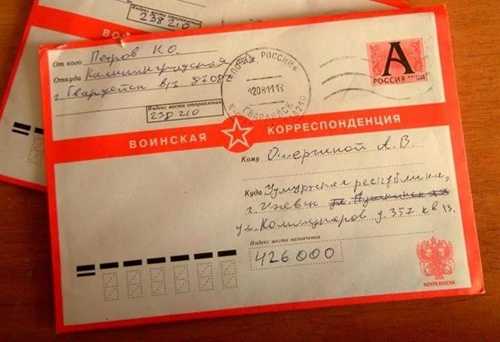 238210
От кого Петров К.О.
Откуда Калининградская
г. Гвардейск в/ч
Индекс места отправления
238210
ПОЧТА РОССИИ
ГВАРДЕЙСК
А
РОССИЯ
ВОИНСКАЯ КОРРЕСПОНДЕНЦИЯ
Кому А. В.
Куда Удмуртская республика,
г. Ижевск
ул. Коммунаров д. 357 кв 13.
Индекс места назначения
426000
ПОЧТА РОССИИ